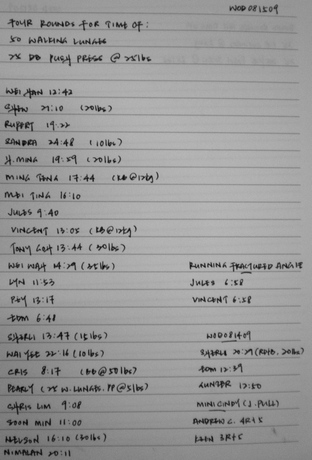 WOD081509
FOUR ROUNDS FOR TIME OF:
50 WALKING LUNGES
25 DB PUSH PRESS @ 25lbs
WEI HAN 12:42
SHEW 21:10 (20lbs)
RUPERT 19:22
SANDRA 24:48 (10lbs)
H.MING 19:59 (20lbs)
MING TENG 17:44 (KB@12kg)
MEI TING 16:10
JULES 9:40
VINCENT 13:05 (KB@12kg)
TONY GOH 13:44 (30lbs)
WEI WAH 14:29 (35lbs)
LYN 11:53
PEY 13:17
TOM 6:48
SHERLI 13:47 (15lbs)
WAI YEE 22:16 (10lbs)
CRIS 8:17 (@50lbs)
PEARLY (25 W.LUNGES, PP@5lbs)
CHRIS LIM 9:08
SOON MIN 11:00
NELSON 16:10 (30lbs)
NIMALAN 20:11
RUNNING FRACTURED ANGIE
JULES 6:58
VINCENT 6:58
WOD081409
SHERLI 20:29 (20lbs)
TOM 12:39
12:50
MINI CINDY (J.PULL)
ANDREW C. 4R+5
3R+5